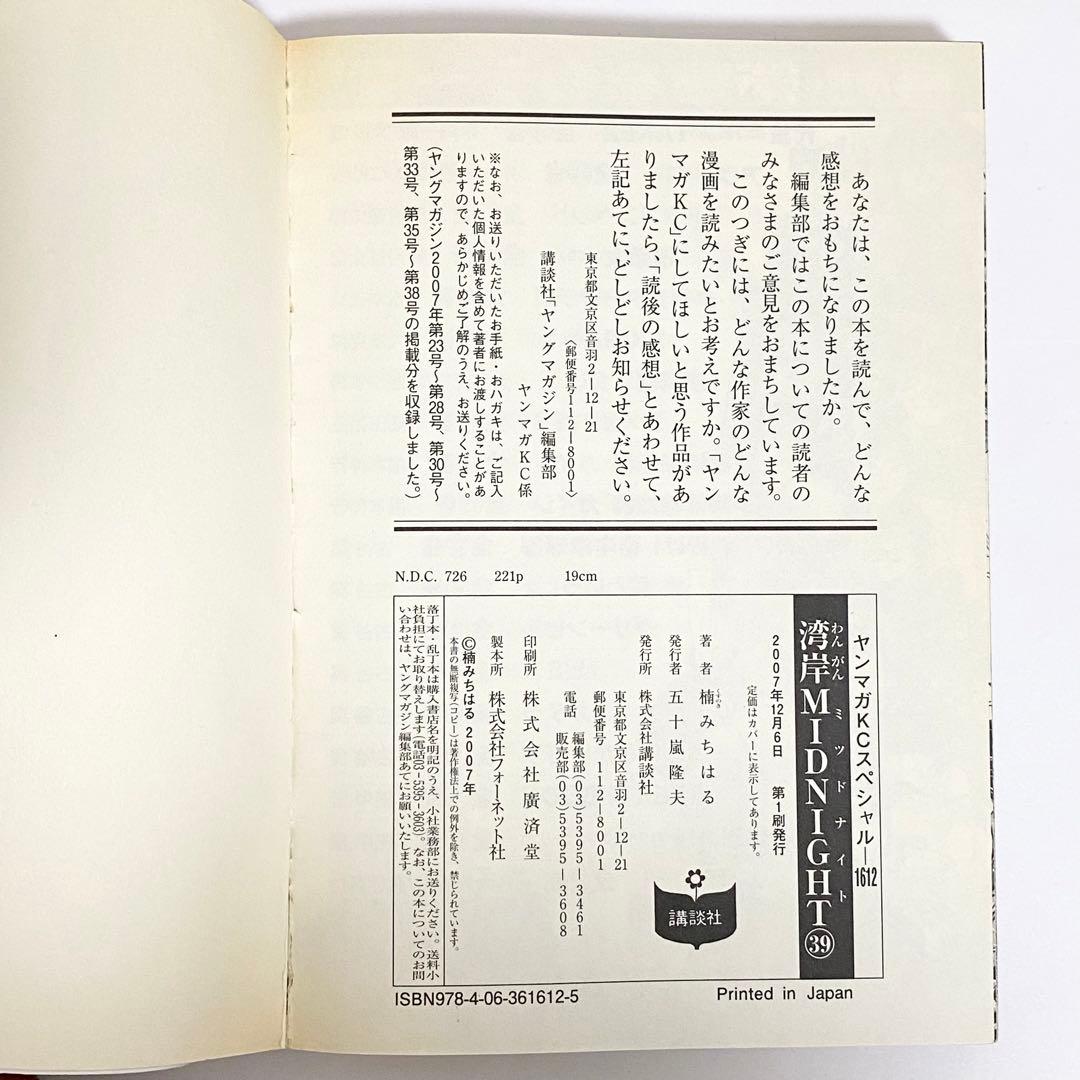 あなたは、この本を読んで、どんな
感想をおもちになりましたか。
編集部ではこの本についての読者の
みなさまのご意見をおまちしています。
このつぎには、どんな作家のどんな
漫画を読みたいとお考えですか。「ヤン
マガKC」にしてほしいと思う作品があ
りましたら、「読後の感想」とあわせて、
左記あてに、どしどしお知らせください。
東京都文京区音羽2―12―21
〈郵便番号112―8001〉
講談社「ヤングマガジン」編集部
ヤンマガKC係
※なお、お送りいただいたお手紙・おハガキは、ご記入
いただいた個人情報を含めて著者にお渡しすることがあ
りますので、あらかじめご了解のうえ、お送りください。
(ヤングマガジン2007年第23号〜第28号、第30号〜
第33号、第35号〜第38号の掲載分を収録しました。)
N.D.C. 726 221p 19cm
ヤンマガKCスペシャル―1612
わんがん ミッドナイト
湾岸MIDNIGHT㊴
2007年12月6日 第1刷発行
定価はカバーに表示してあります。
著者 楠みちはる
くすのき
発行者 五十嵐隆夫
発行所 株式会社講談社
東京都文京区音羽2―12―21
郵便番号 112―8001
電話 編集部(03)5395―3461
販売部(03)5395―3608
印刷所 株式会社廣済堂
製本所 株式会社フォーネット社
©楠みちはる 2007年
本書の無断複写(コピー)は著作権法上での例外を除き、禁じられています。
落丁本・乱丁本は購入書店名を明記のうえ、小社業務部にお送りください。送料小
社負担にてお取り替えします(電話03―5395―3603)。なお、この本についてのお問
い合わせは、ヤングマガジン編集部あてにお願いいたします。
講談社
ISBN978-4-06-361612-5
Printed in Japan